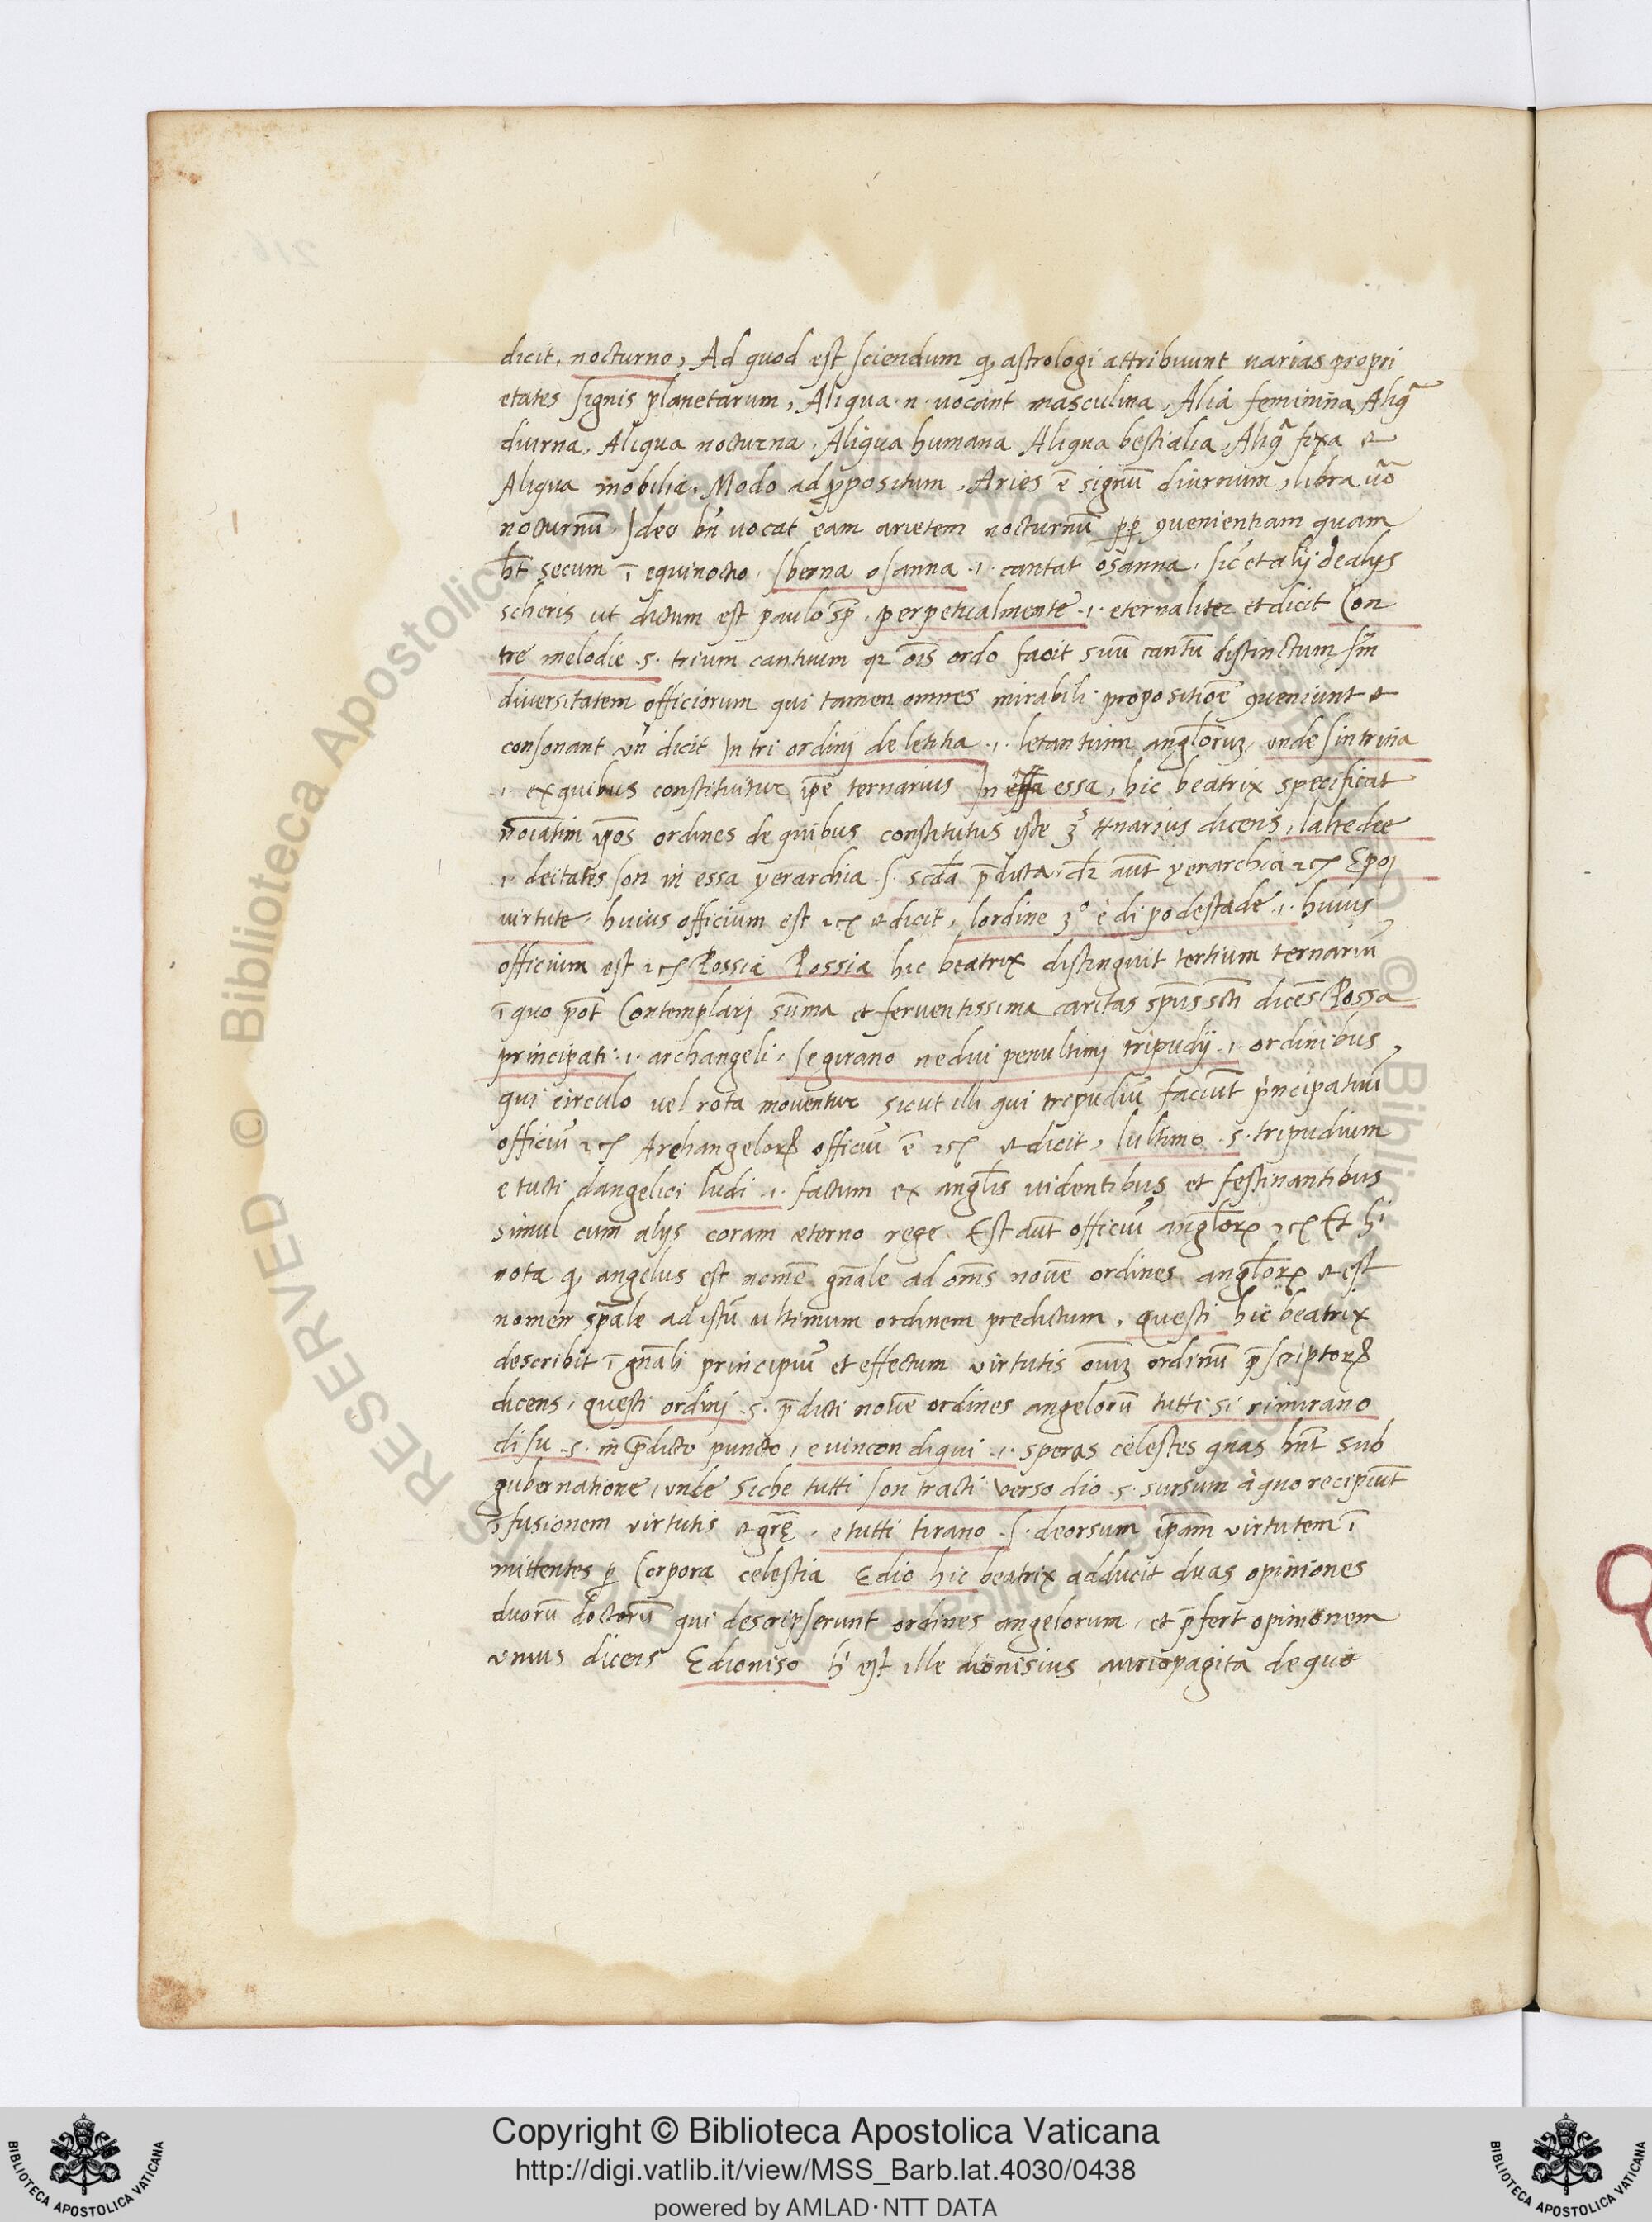 dicit, nocturno, Ad quod est sciendum q, astrologi attribuunt varias propri
etates signis planetarum, Aliqua .n. vocant masculina, Alia feminina, Aliq̃
diurna, Aliqua nocturna, Aliqua humana Aliqua bestialia, Aliq̃ fixa et
Aliqua mobilia, Modo ad ꝓpositum, Aries ẽ signũ diurnum, libra ṽo
nocturnũ. Ideo bñ vocat eam arietem nocturnũ ꝑꝑ ꝯvenientiam quam
h̃t secum ĩ equinoctio, sberna osanna .i. cantat osanna, sic̃ et alij de alys
scheris ut dictum est paulo sp̃, perpetualmente .i. eternaliter et dicit Con
tre melodie .s. trium cantium qꝛ oĩs ordo facit suũ cantũ distinctum, sm̃
diversitatem officiorum qui tamen omnes mirabili propositiõe ꝯveniunt et
consonant vñ dicit In tri ordinj de letitia .i. letantium anglõrum, onde sintrina
.i. ex quibus constituitur ip̃e ternarius In essa, hic beatrix specificat
noĩatim ip̃os ordines de quibus constitutus iste 3s ternarius dicens, laltre dee
.i. deitates son in essa yerarchia .s. scd̃a p̃dicta, dꝛ aũt yerarchia ⁊c̃ Epoj
virtute, huius officium est ⁊c̃ et dicit, lordine 3º è di podestade .i. huius
officium est ⁊c̃ Possia Possia hic beatrix distinguit tertium ternariũ
ĩ quo põt Contemplarj sum̃a et ferventissima caritas sp̃us sc̃ti dicẽs Possa
principati .i. archangeli, se girano ne dui penultimj tripudij .i. ordinibus,
qui circulo vel rota moventur sicut illi qui tripudiũ faciũt principatuũ
officiũ ⁊c̃ Archangeloꝝ officiũ ẽ ⁊c̃ et dicit, lultimo .s. tripudium
e tucti dangelici ludi .i. factum ex anglis videntibus et festinantibus
simul cum alys coram eterno rege. Est aũt officiũ angloꝝ ⁊c̃ Et hi
nota q, angelus est nomẽ gñale ad om̃s novẽ ordines angloꝝ et est
nomen sp̃ale ad istũ ultimum ordinem predictum, questi hic beatrix
describit ĩ gñali principiũ et effectum virtutis oĩuz ordinũ p̃scriptoꝝ
dicens, questi ordinj .s. p̃dicti novẽ ordines angelorũ tutti si rimirano
di su .s. in p̃dicto puncto, e vincon di qui .i. speras celestes quas hñt sub
gubernatione, unde siche tutti son tracti verso dio .s. sursum à quo recipiũt
ĩfusionem virtutis et grẽ, e tutti tirano .s. deorsum ip̃am virtutem ĩ
mittentes ꝑ Corpora celestia E dio hic beatrix adducit duas opiniones
duorũ doctorũ qui descripserunt ordines angelorum, et p̃fert opinionem
unius dicens E dioniso hi est ille dionisius auriopagita de quo
Copyright © Biblioteca Apostolica Vaticana
http://digi.vatlib.it/view/MSS_Barb.lat.4030/0438
powered by AMLAD·NTT DATA
BIBLIOTECA APOSTOLICA VATICANA
BIBLIOTECA APOSTOLICA VATICANA